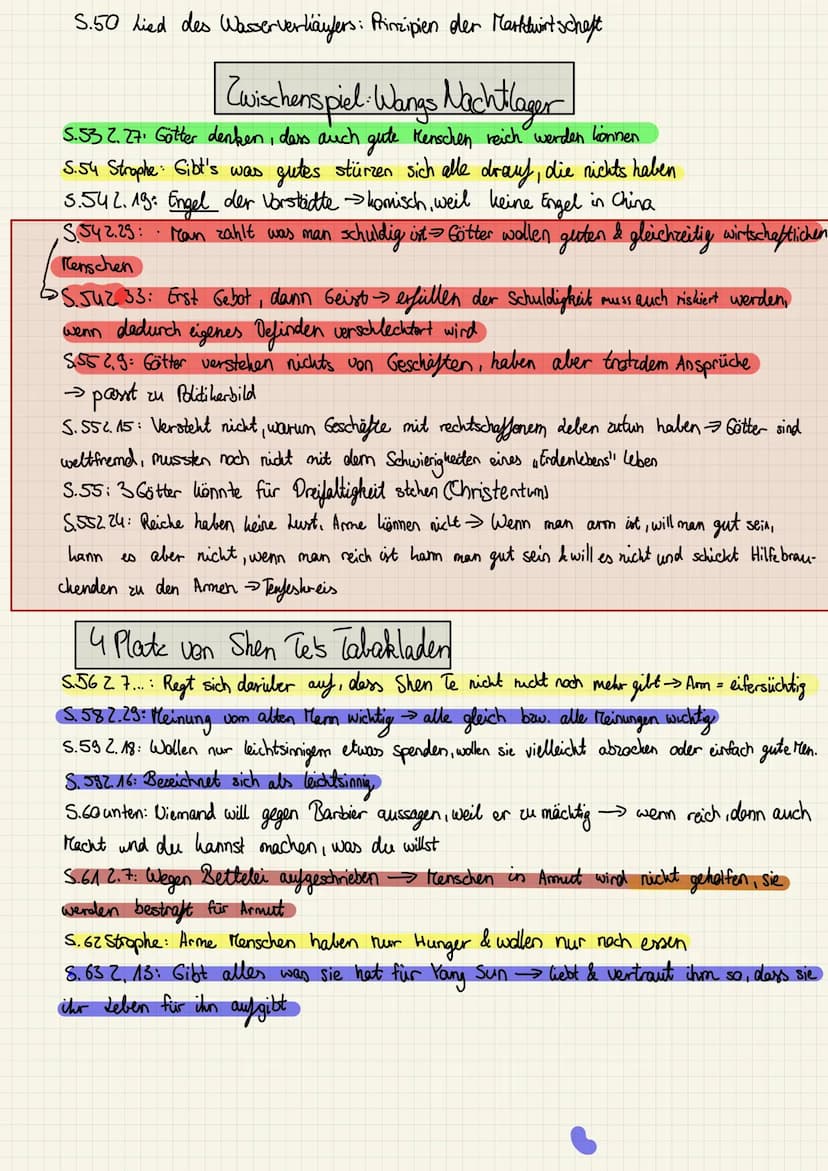 S.50 Lied des Wasserverkäufers: Prinzipien der Marktwirtschaft
Zwischenspiel: Wangs Nachtlager
S.53 Z.27: Götter denken, dass auch gute Menschen reich werden können
S.54 Strophe: Gibt's was gutes stürzen sich alle drauf, die nichts haben
S.54 Z.19: Engel der Vorstädte → komisch, weil keine Engel in China
S.54 Z.29: Man zahlt was man schuldig ist → Götter wollen guten & gleichzeitig wirtschaftlichen
Menschen
S.54 Z.33: Erst Gebot, dann Geist → erfüllen der Schuldigkeit muss auch riskiert werden,
wenn dadurch eigenes Befinden verschlechtert wird
S.55 Z.9: Götter verstehen nichts von Geschäften, haben aber trotzdem Ansprüche
→ passt zu Politikerbild
S.55 Z.15: Versteht nicht, warum Geschäfte mit rechtschaffenem Leben zutun haben → Götter sind
weltfremd, mussten noch nicht mit dem Schwierigkeiten eines „Erdenlebens" leben
S.55: 3 Götter könnte für Dreifaltigkeit stehen (Christentum)
S.55 Z.24: Reiche haben keine Lust, Arme können nicht → Wenn man arm ist, will man gut sein,
kann es aber nicht, wenn man reich ist kann man gut sein & will es nicht und schickt Hilfebrau-
chenden zu den Armen → Teufeskreis
4 Platz von Shen Te's Tabakladen
S.56 Z.7...: Regt sich darüber auf, dass Shen Te nicht nicht noch mehr gibt → Arm = eifersüchtig
S.58 Z.29: Meinung vom alten Mann wichtig → alle gleich bzw. alle Meinungen wichtig
S.59 Z.18: Wollen nur leichtsinnigem etwas spenden, wollen sie vielleicht abzocken oder einfach gute Men.
S.59 Z.16: Bezeichnet sich als leichtsinnig
S.60 unten: Niemand will gegen Barbier aussagen, weil er zu mächtig → wenn reich, dann auch
Macht und du kannst machen, was du willst
S.61 Z.7: Wegen Bettelei aufgeschrieben → Menschen in Armut wird nicht geholfen, sie
werden bestraft für Armut
S.62 Strophe: Arme Menschen haben nur Hunger & wollen nur noch essen
S.63 Z.13: Gibt alles was sie hat für Yang Sun → liebt & vertraut ihm so, dass sie
ihr Leben für ihn aufgibt